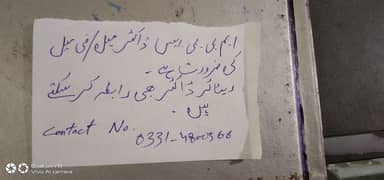 ایم بی بی ایس ڈاکٹر میل/فی میل
کی ضرورت ہے۔
ریٹائر ڈاکٹر بھی رابطہ کر سکتے
ہیں۔
Contact No.
0331-4800366
Vivo AI camera